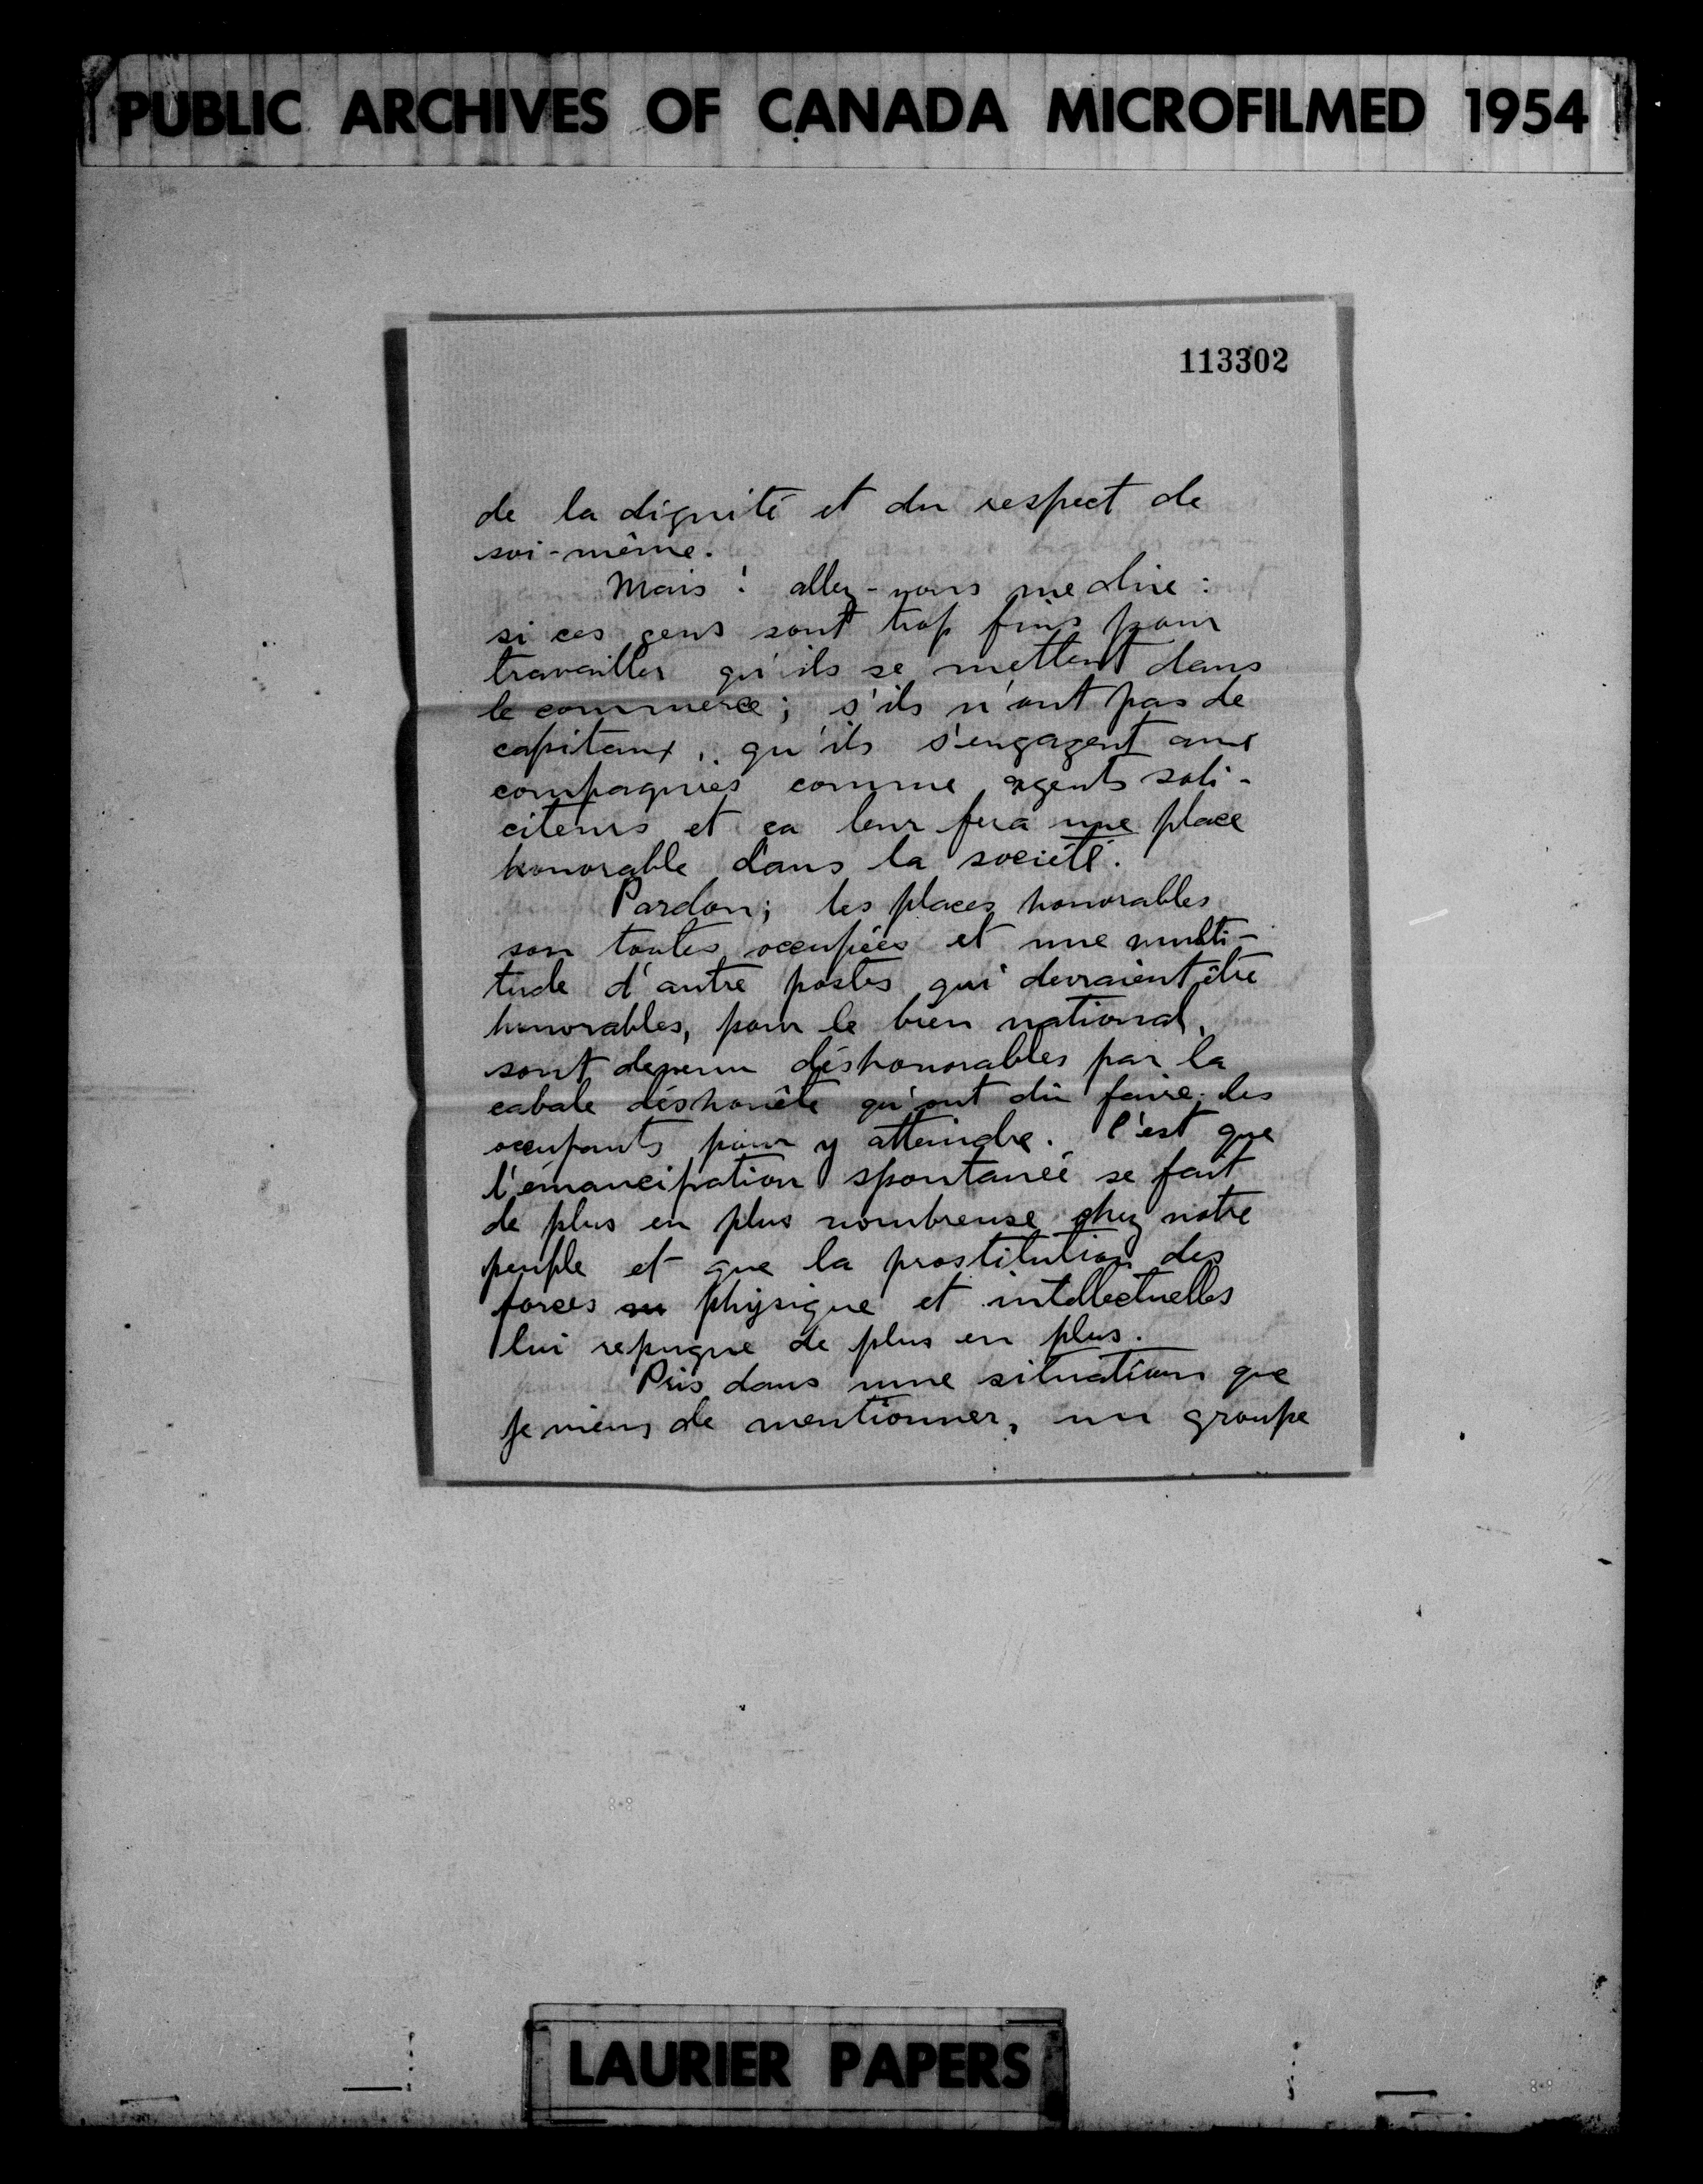 PUBLIC ARCHIVES OF CANADA MICROFILMED 1954
113302
de la dignité et du respect de
soi-même.
Mais! allez-vous me dire:
si ces gens sont trop fins pour
travailler qu'ils se mettent dans
le commerce; s'ils n'ont pas de
capitaux, qu'ils s'engagent aux
compagnies comme agents soli-
citeurs et ça leur fera une place
honorable dans la société.
Pardon; les places honorables
son toutes occupées et une multi-
tude d'autre postes qui devraient être
honorables, pour le bien national,
sont devenu déshonorables par la
cabale déshonête qu'ont dû faire les
occupants pour y atteindre. C'est que
l'émancipation spontanée se fait
de plus en plus nombreuse chez notre
peuple et que la prostitution des
forces physique et intellectuelles
lui repugne de plus en plus.
Pris dans une situation que
je viens de mentionner, un groupe
LAURIER PAPERS